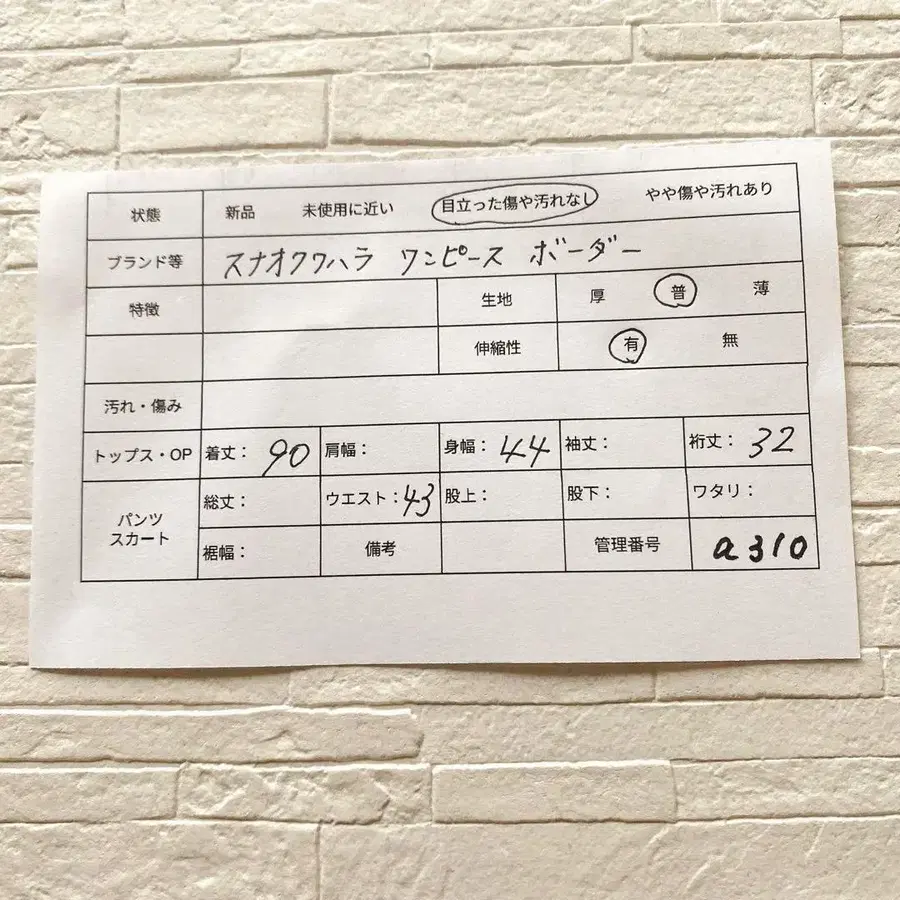 状態 新品 未使用に近い 目立った傷や汚れなし やや傷や汚れあり
ブランド等 スナオクワハラ ワンピース ボーダー
特徴 生地 厚 普 薄
伸縮性 有 無
汚れ・傷み
トップス・OP 着丈： 90 肩幅： 身幅： 44 袖丈： 裄丈： 32
パンツ スカート 総丈： ウエスト：43 股上： 股下： ワタリ：
裾幅： 備考 管理番号 a310